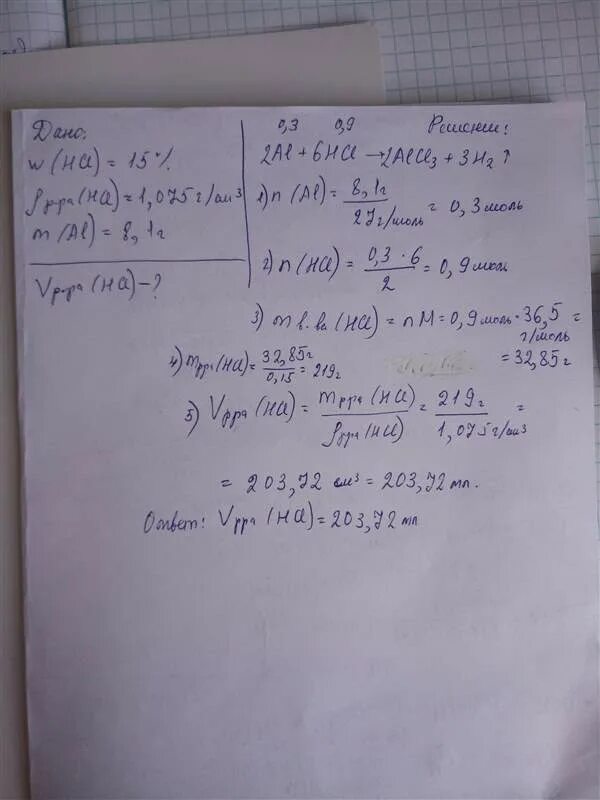 Дано:
w(HCl) = 15%
ρр-ра(HCl) = 1,075 г/см³
m(Al) = 8,1г
Vр-ра(HCl) - ?
0,3 0,9 Решение:
2Al + 6HCl → 2AlCl₃ + 3H₂↑
1) n(Al) = 8,1г / 27г/моль = 0,3 моль
2) n(HCl) = 0,3 · 6 / 2 = 0,9 моль
3) m в-ва (HCl) = nM = 0,9 моль · 36,5 г/моль =
= 32,85 г
4) mр-ра(HCl) = 32,85г / 0,15 = 219г
5) Vр-ра(HCl) = mр-ра(HCl) / ρр-ра(HCl) = 219г / 1,075г/см³ =
= 203,72 см³ = 203,72 мл.
Ответ: Vр-ра(HCl) = 203,72 мл